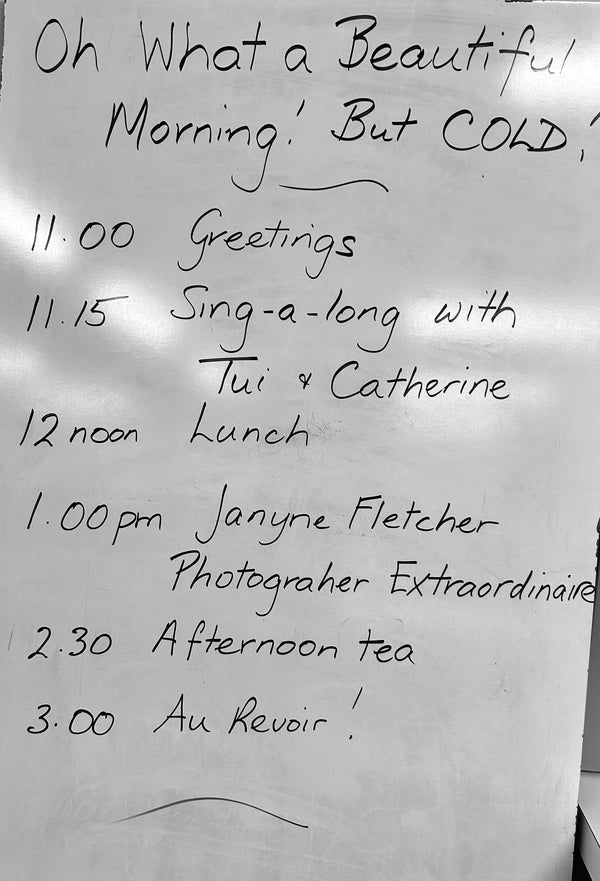 Oh What a Beautiful
Morning! But COLD!
11.00 Greetings
11.15 Sing-a-long with
Tui & Catherine
12 noon Lunch
1.00pm Janyne Fletcher
Photograher Extraordinaire
2.30 Afternoon tea
3.00 Au Revoir!